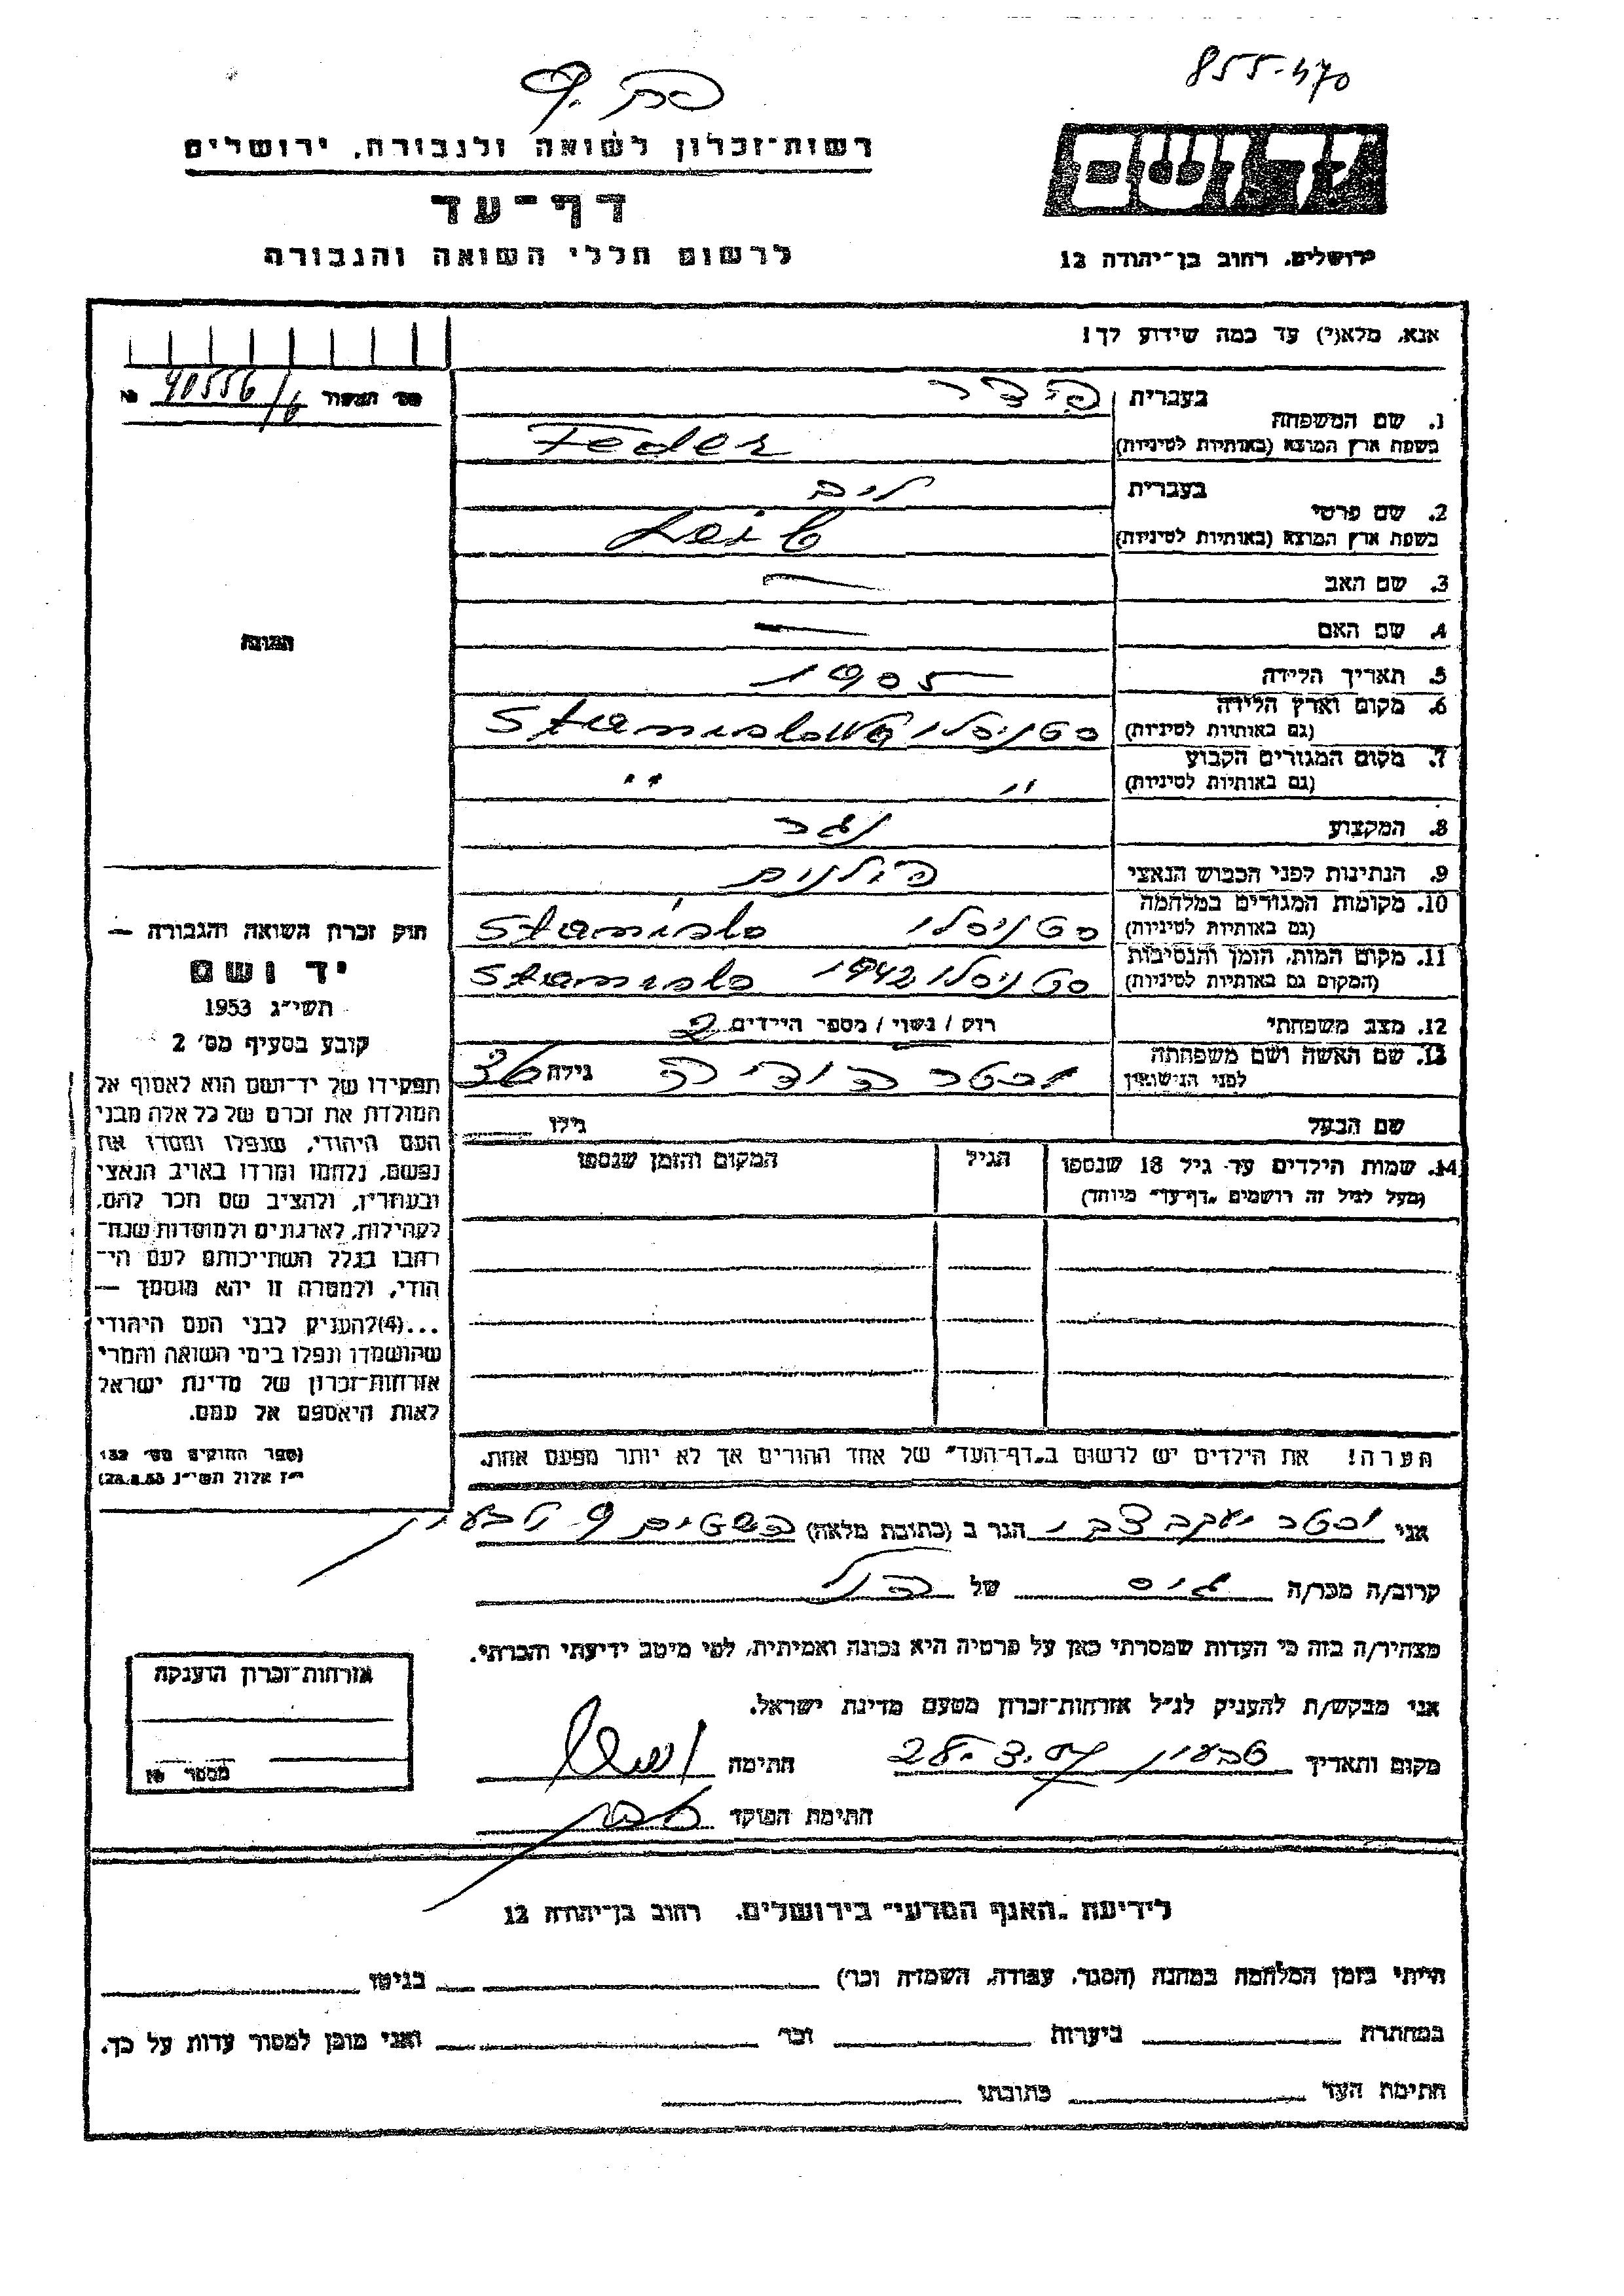 855-470
רשות-זכרון לשואה ולגבורה, ירושלים
דף-עד
לרשום חללי השואה והגבורה
ירושלים, רחוב בן-יהודה 12
אנא, מלא(י) עד כמה שידוע לך!
1. שם המשפחה
בעברית פידר
בשפת ארץ המוצא (באותיות לטיניות) Feder
2. שם פרטי
בעברית ליב
בשפת ארץ המוצא (באותיות לטיניות) Leib
3. שם האב —
4. שם האם —
5. תאריך הלידה 1905
6. מקום וארץ הלידה
(גם באותיות לטיניות) סטניסלו
7. מקום המגורים הקבוע
(גם באותיות לטיניות) " "
8. המקצוע נגר
9. הנתינות לפני הכבוש הנאצי פולנים
10. מקומות המגורים במלחמה
(גם באותיות לטיניות) סטניסלו Stanislo
11. מקום המות, הזמן והנסיבות
(המקום גם באותיות לטיניות) סטניסלו 1942 Stanislo
12. מצב משפחתי רוק / נשוי / מספר הילדים 2
13. שם האשה ושם משפחתה
לפני הנישואין גילה 36
שם הבעל גילו
14. שמות הילדים עד גיל 18 שנספו
(מעל לגיל זה רושמים „דף-עד" מיוחד)
הגיל
המקום והזמן שנספו
הערה! את הילדים יש לרשום ב„דף-העד" של אחד ההורים אך לא יותר מפעם אחת.
מס' תעשור 40556/6 №
תמונה
חוק זכרון השואה והגבורה —
יד ושם
תשי"ג 1953
קובע בסעיף מס' 2
תפקידו של יד-ושם הוא לאסוף אל
המולדת את זכרם של כל אלה מבני
העם היהודי, שנפלו ומסרו את
נפשם, נלחמו ומרדו באויב הנאצי
ובעוזריו, ולהציב שם וזכר להם,
לקהילות, לארגונים ולמוסדות שנח-
רבו בגלל השתייכותם לעם הי-
הודי, ולמטרה זו יהא מוסמך —
...(4)להעניק לבני העם היהודי
שהושמדו ונפלו בימי השואה והמרי
אזרחות-זכרון של מדינת ישראל
לאות היאספם אל עמם.
(ספר החוקים מס' 132
י"ז אלול תשי"ג 28.8.53)
אני יעקב צבי הגר ב (כתובת מלאה) 9 טבעון
קרוב/ה מכר/ה גיס של
מצהיר/ה בזה כי העדות שמסרתי כאן על פרטיה היא נכונה ואמיתית, לפי מיטב ידיעתי והכרתי.
אני מבקש/ת להעניק לנ"ל אזרחות-זכרון מטעם מדינת ישראל.
מקום ותאריך טבעון חתימה
חתימת הפוקד
אזרחות-זכרון הוענקה
מספר №
לידיעת „האגף המדעי" בירושלים, רחוב בן-יהודה 12
הייתי בזמן המלחמה במחנה (הסגר, עבודה, השמדה וכו') בגיטו
במחתרת ביערות וכו' ואני מוכן למסור עדות על כך.
חתימת העד כתובתו